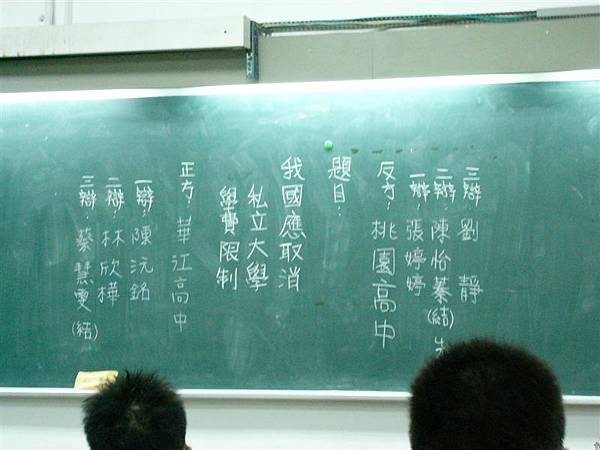 三辯 劉靜
二辯：陳怡蓁(結)
一辯：張婷婷
反方：桃園高中
題目：
我國應取消
私立大學
學費限制
正方：華江高中
一辯：陳沅銘
二辯：林欣樺
三辯：蔡慧雯(結)